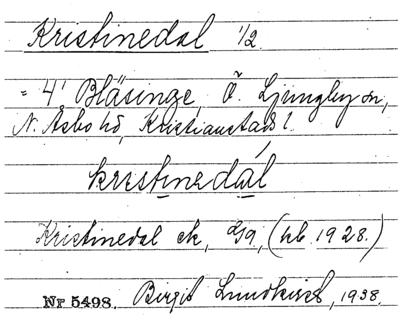 Kristinedal 1/2
= 4¹ Bläsinge, Ö. Ljungby sn,
N. Åsbo hd, Kristianstads l.
kristinedál
Kristinedal ek, (kb 1928.)
Nr 5498. Birgit Lundkvist, 1938.